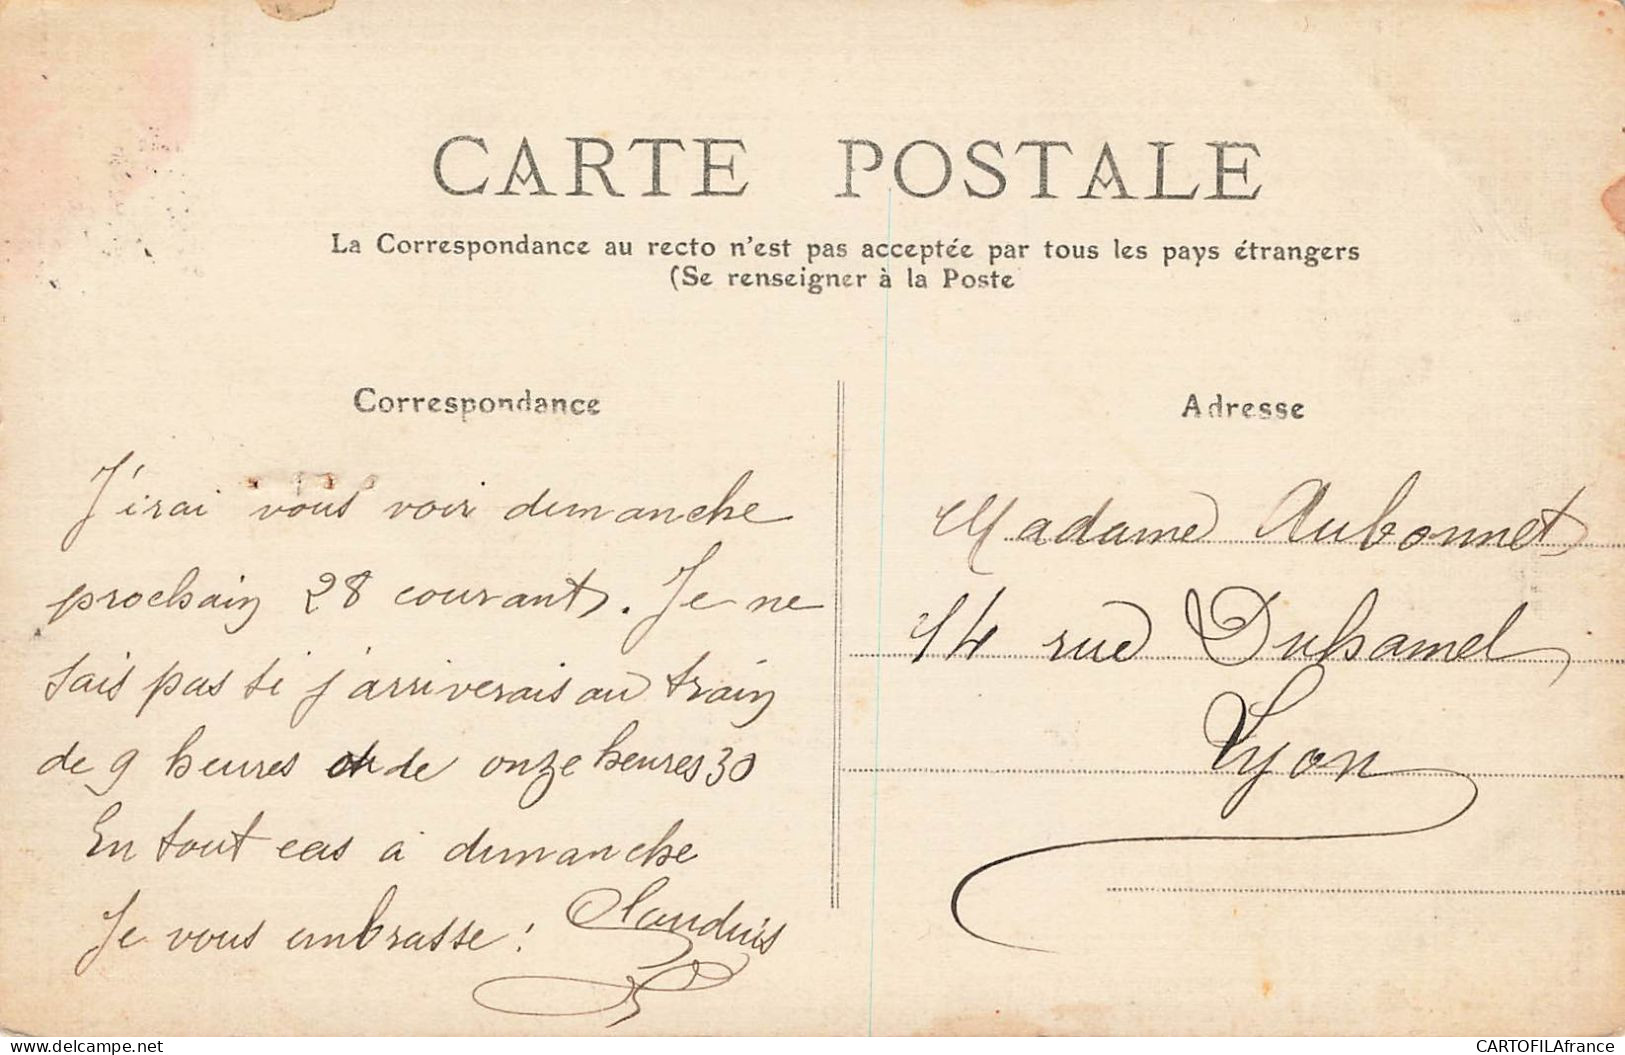 CARTE POSTALE
La Correspondance au recto n'est pas acceptée par tous les pays étrangers
(Se renseigner à la Poste
Correspondance
J'irai vous voir dimanche
prochain 28 courant. Je ne
sais pas si j'arriverais au train
de 9 heures ou de onze heures 30
En tout cas à dimanche
Je vous embrasse : Claudius
Adresse
Madame Aubonnet
14 rue Duhamel
Lyon
delcampe.net
CARTOFILAfrance